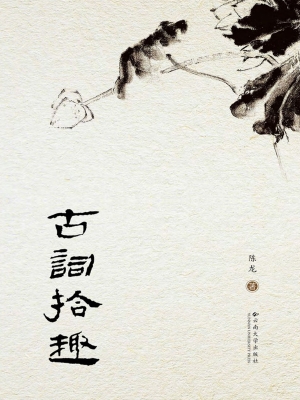 古詞拾趣
陈龙 著
云南大学出版社
YUNNAN UNIVERSITY PRESS